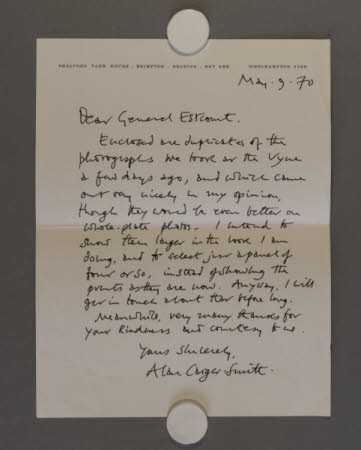 SHALFORD PARK HOUSE · BRIMPTON · READING · RG7 4SQ WOOLHAMPTON 2409
May. 9. 70
Dear General Estcourt.
Enclosed are duplicates of the
photographs we took at the Vyne
a few days ago, and which came
out very nicely in my opinion,
though they would be even better on
whole-plate photos. I intend to
show them larger in the book I am
doing, and to select just a panel of
four or so, instead of showing the
prints as they are now. Anyway, I will
get in touch about that before long.
Meanwhile, very many thanks for
your kindness and courtesy to us.
Yours sincerely,
Alan Caiger Smith.